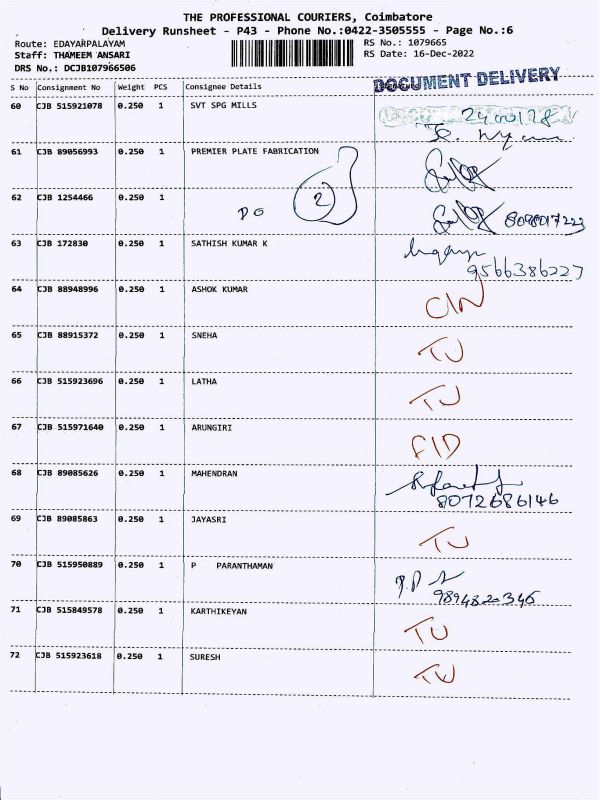 THE PROFESSIONAL COURIERS, Coimbatore
Delivery Runsheet - P43 - Phone No.:0422-3505555 - Page No.:6
Route: EDAYARPALAYAM RS No.: 1079665
Staff: THAMEEM ANSARI RS Date: 16-Dec-2022
DRS No.: DCJB107966506
DOCUMENT DELIVERY
S No Consignment No Weight PCS Consignee Details
60 CJB 515921078 0.250 1 SVT SPG MILLS
61 CJB 89056993 0.250 1 PREMIER PLATE FABRICATION
62 CJB 1254466 0.250 1
DO 2 8098017223
63 CJB 172830 0.250 1 SATHISH KUMAR K
9566386227
64 CJB 88948996 0.250 1 ASHOK KUMAR CIN
65 CJB 88915372 0.250 1 SNEHA TU
66 CJB 515923696 0.250 1 LATHA TU
67 CJB 515971640 0.250 1 ARUNGIRI FID
68 CJB 89085626 0.250 1 MAHENDRAN
8072686146
69 CJB 89085863 0.250 1 JAYASRI TU
70 CJB 515950889 0.250 1 P PARANTHAMAN
9894820346
71 CJB 515849578 0.250 1 KARTHIKEYAN TU
72 CJB 515923618 0.250 1 SURESH TU